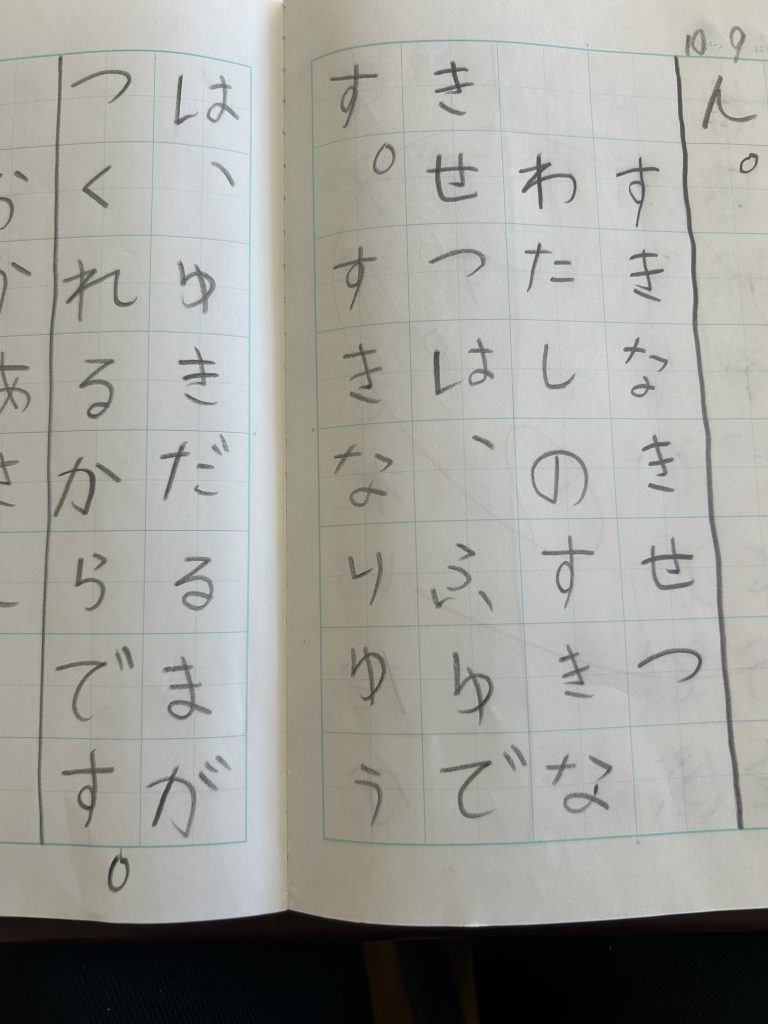 10 9
ん。
すきなきせつ
わたしのすきな
きせつは、ふゆで
す。すきなりゆう
は、ゆきだるまが
つくれるからです。